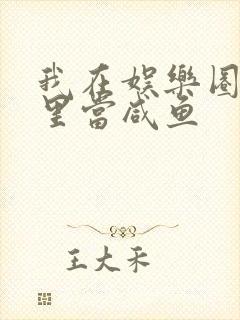 我在娱樂圈
里當咸鱼
王大禾